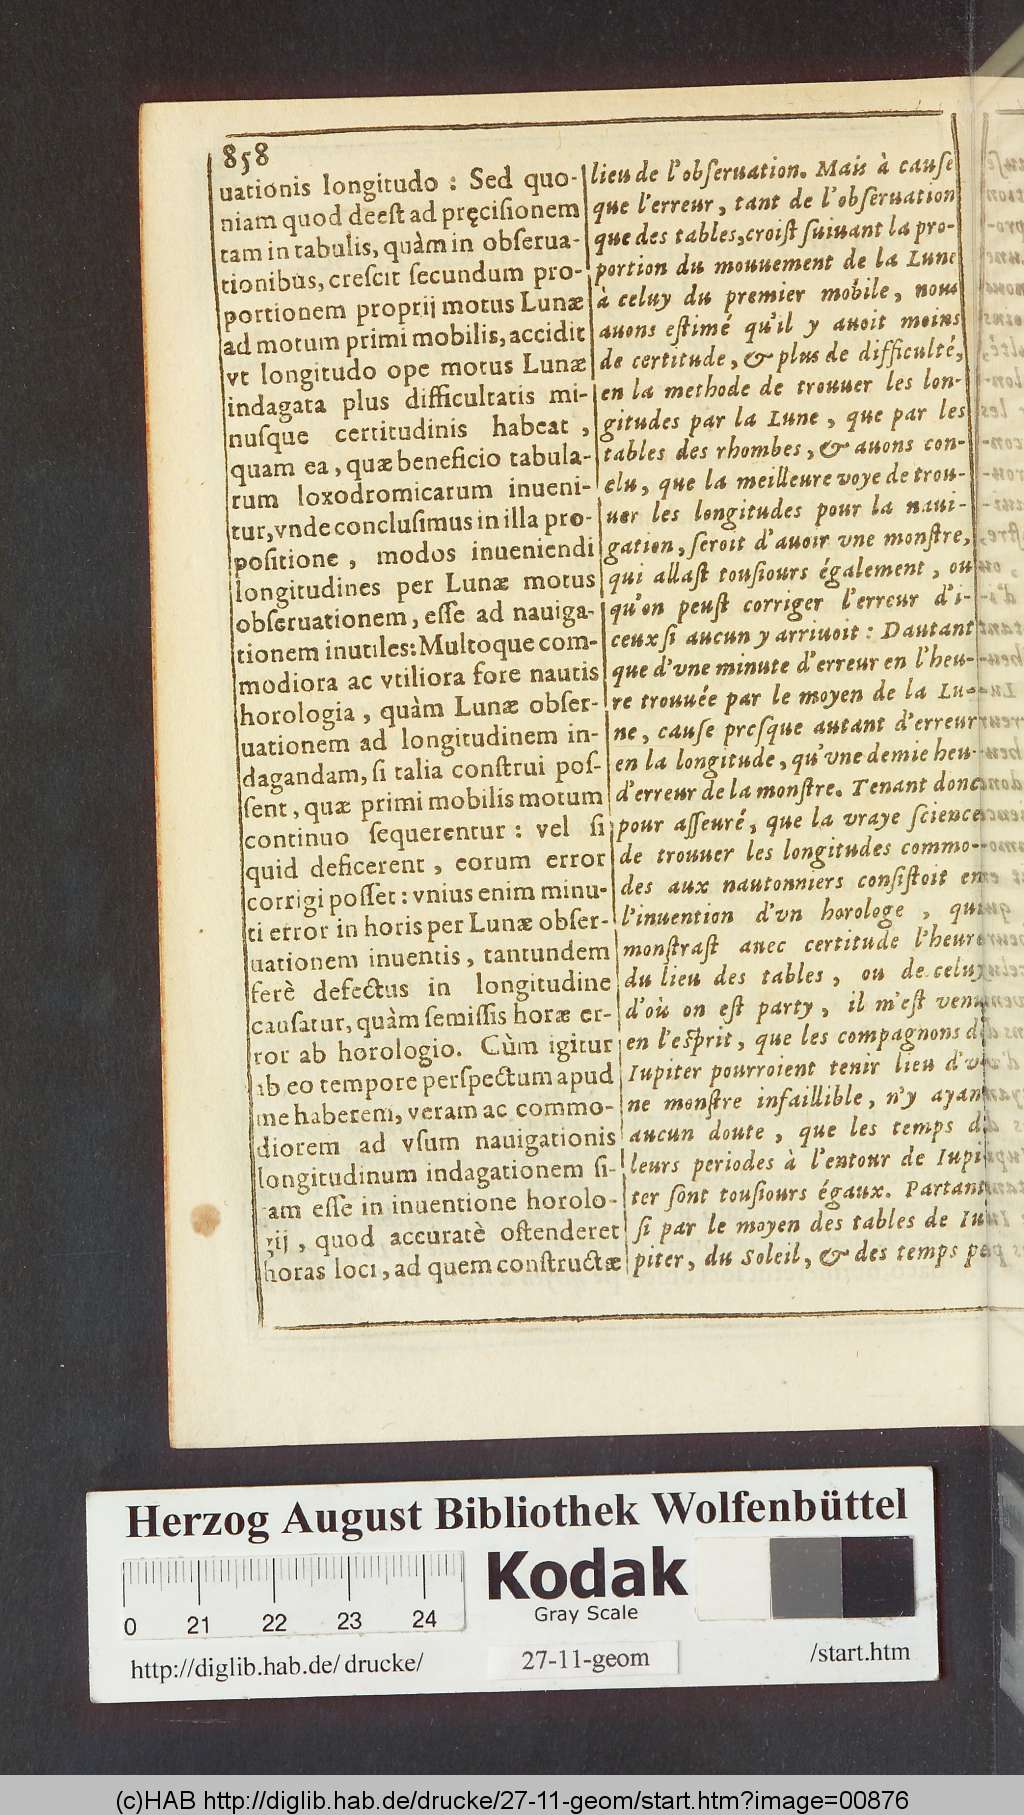 858
uationis longitudo : Sed quo-
niam quod deest ad pręcisionem
tam in tabulis, quàm in obserua-
tionibus, crescit secundum pro-
portionem proprij motus Lunæ
ad motum primi mobilis, accidit
vt longitudo ope motus Lunæ
indagata plus difficultatis mi-
nusque certitudinis habeat ,
quam ea, quæ beneficio tabula-
rum loxodromicarum inueni-
tur, vnde conclusimus in illa pro-
positione , modos inueniendi
longitudines per Lunæ motus
obseruationem, esse ad nauiga-
tionem inutiles: Multoque com-
modiora ac vtiliora fore nautis
horologia , quàm Lunæ obser-
uationem ad longitudinem in-
dagandam, si talia construi pos-
sent, quæ primi mobilis motum
continuo sequerentur : vel si
quid deficerent , eorum error
corrigi posset : vnius enim minu-
ti error in horis per Lunæ obser-
uationem inuentis, tantundem
ferè defectus in longitudine
causatur, quàm semissis horæ er-
ror ab horologio. Cùm igitur
ab eo tempore perspectum apud
me haberem, veram ac commo-
diorem ad vsum nauigationis
longitudinum indagationem si-
tam esse in inuentione horolo-
gij , quod accuratè ostenderet
horas loci, ad quem constructæ
lieu de l'obseruation. Mais à cause
que l'erreur, tant de l'obseruation
que des tables, croist suiuant la pro-
portion du mouuement de la Lune
à celuy du premier mobile, nous
auons estimé qu'il y auoit moins
de certitude, & plus de difficulté,
en la methode de trouuer les lon-
gitudes par la Lune , que par les
tables des rhombes, & auons con-
clu, que la meilleure voye de trou-
uer les longitudes pour la naui-
gation, seroit d'auoir vne monstre,
qui allast tousiours également, ou
qu'on peust corriger l'erreur d'i-
ceux si aucun y arriuoit : Dautant
que d'vne minute d'erreur en l'heu-
re trouuée par le moyen de la Lu-
ne, cause presque autant d'erreur
en la longitude, qu'vne demie heu-
d'erreur de la monstre. Tenant donc
pour asseuré, que la vraye science
de trouuer les longitudes commo-
des aux nautonniers consistoit en
l'inuention d'vn horologe , qui
monstrast auec certitude l'heure
du lieu des tables, ou de celuy
d'où on est party, il m'est venu
en l'esprit, que les compagnons de
Iupiter pourroient tenir lieu d'v-
ne monstre infaillible, n'y ayant
aucun doute, que les temps de
leurs periodes à l'entour de Iupi-
ter sont tousiours égaux. Partant
si par le moyen des tables de Iu-
piter, du Soleil, & des temps pe-
Herzog August Bibliothek Wolfenbüttel
Kodak
Gray Scale
0 21 22 23 24
http://diglib.hab.de/drucke/
27-11-geom
/start.htm
(c)HAB http://diglib.hab.de/drucke/27-11-geom/start.htm?image=00876